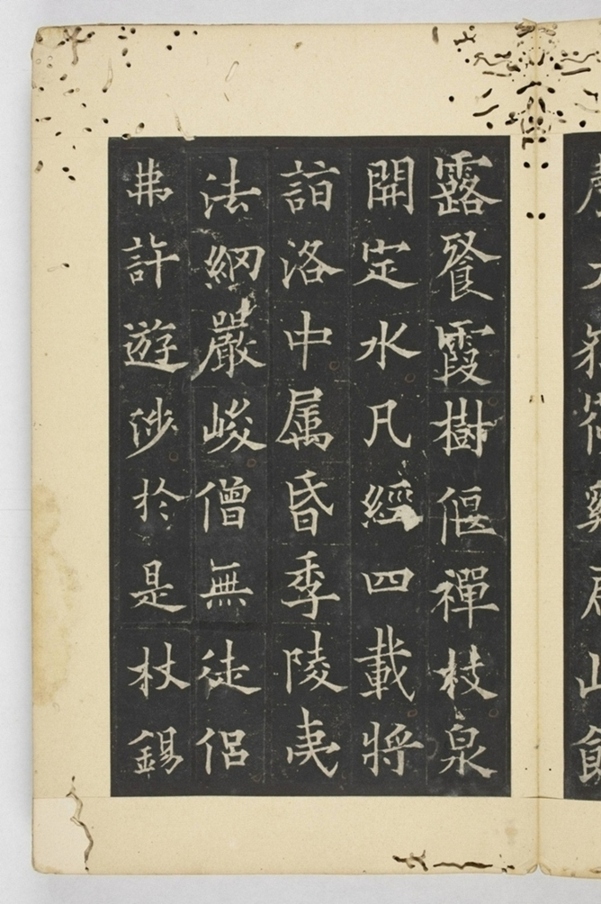 露餐霞樹偃禪枝泉
開定水凡經四載將
詣洛中属昏季陵夷
法網嚴峻僧無徒侶
弗許遊涉於是杖錫